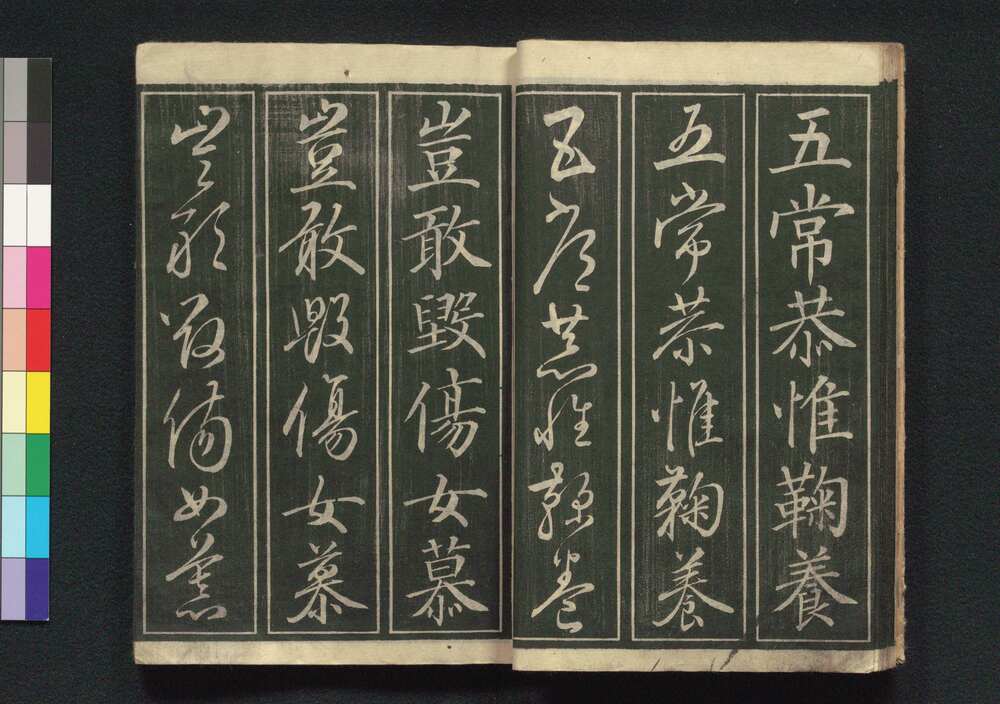 五常恭惟鞠養
五常恭惟鞠養
五常恭惟鞠養
豈敢毀傷女慕
豈敢毀傷女慕
豈敢毀傷女慕